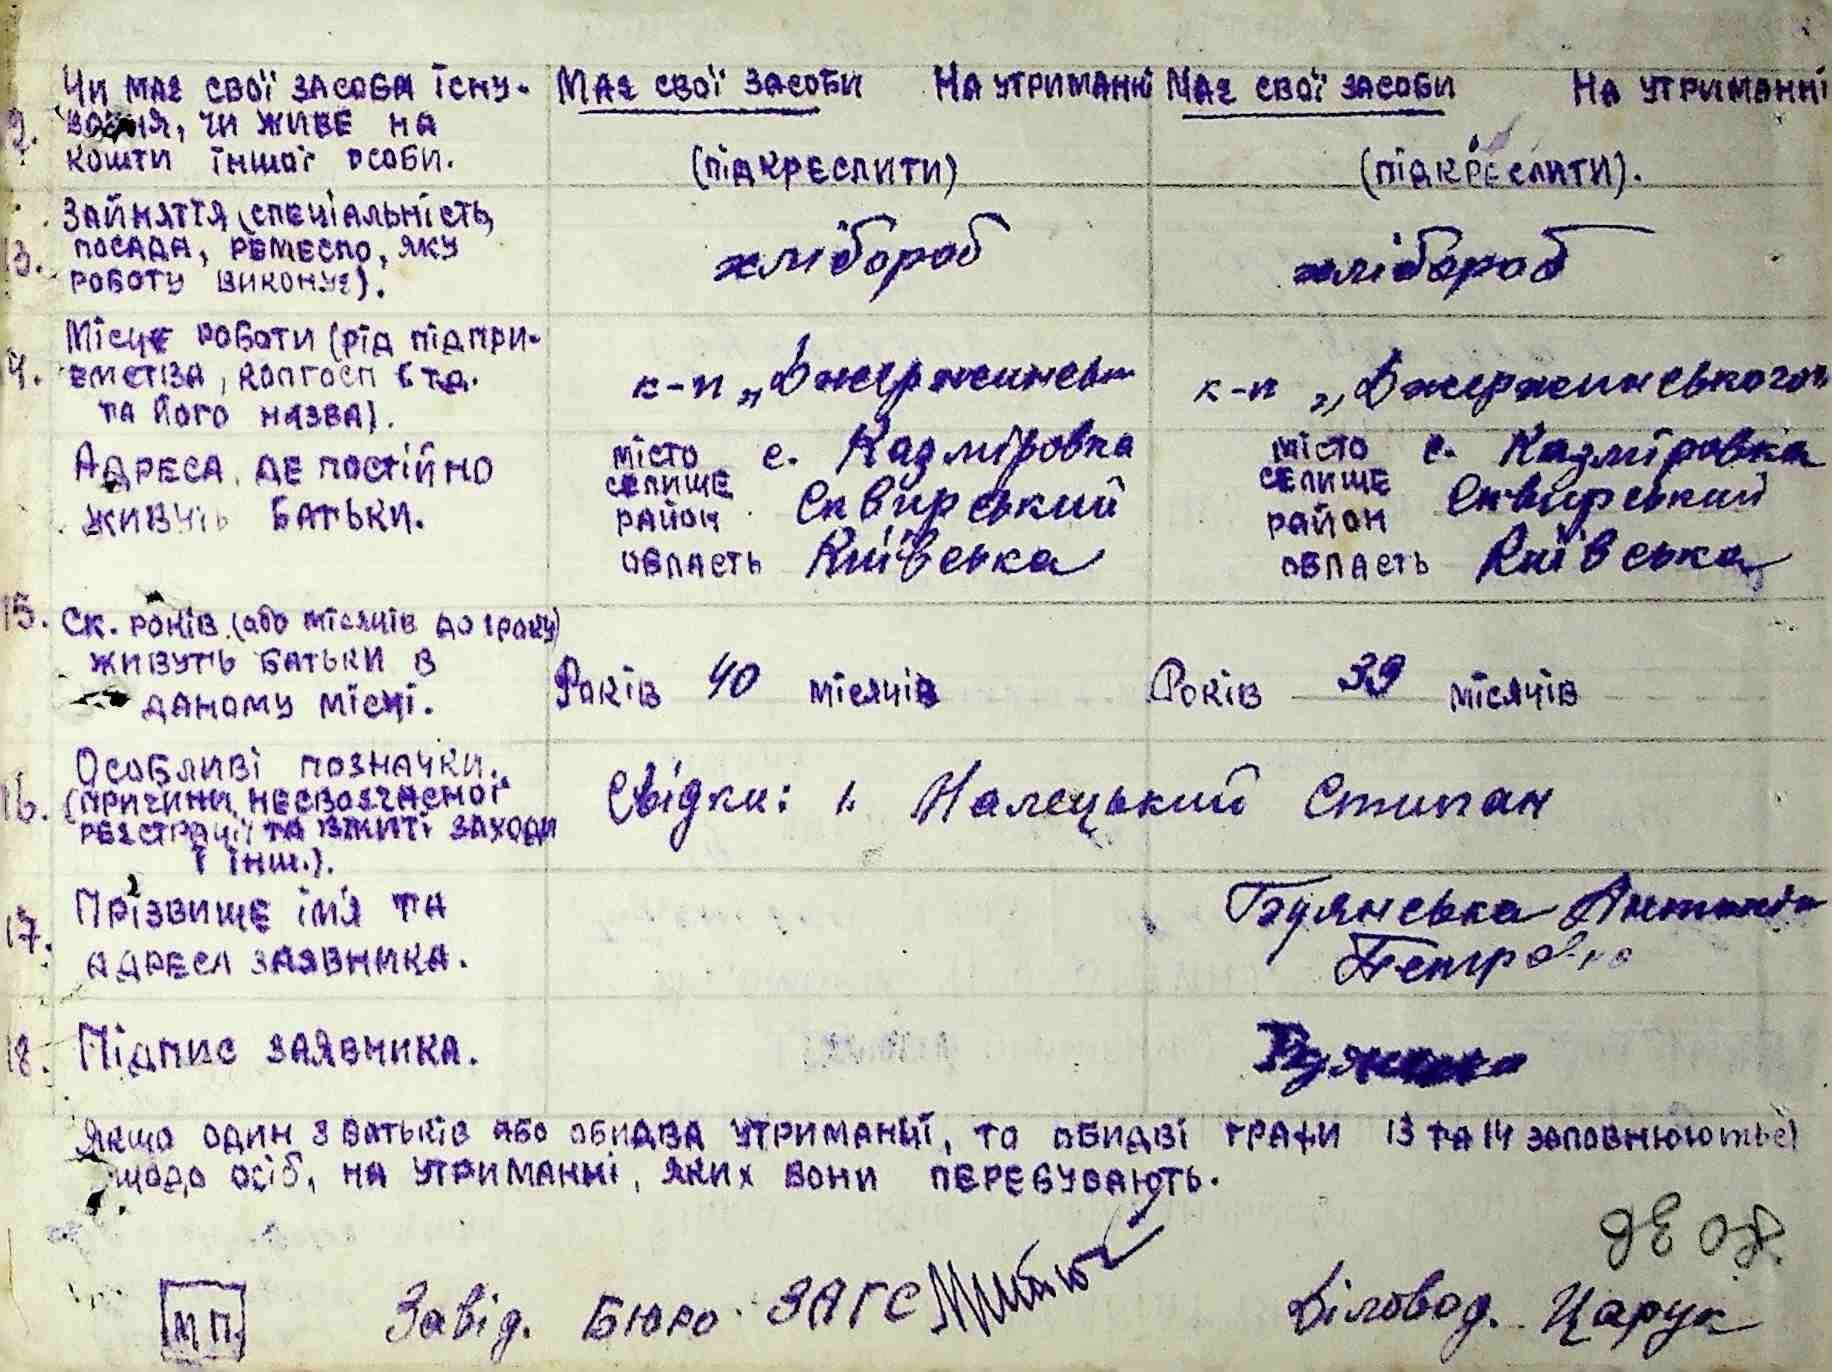 Чи має свої засоби існу-
вання, чи живе на
кошти іншої особи.
Має свої засоби На утриманні
(підкреслити)
Має свої засоби На утриманні
(підкреслити).
13. Зайняття (спеціальність,
посада, ремесло, яку
роботу виконує).
хлібороб
хлібороб
Місце роботи (рід підпри-
ємства, колгосп і т.д.
та його назва).
к-п „Джержинськ
к-п „Джержинського"
Адреса, де постійно
живуть батьки.
місто с. Казміровка
селище
район Сквирський
область Київська
місто с. Казміровка
селище
район Сквирський
область Київська
15. Ск. років (або місяців до 1 року)
живуть батьки в
даному місці.
Років 40 місяців
Років 39 місяців
16. Особливі позначки.
(причини несвоячасної
реєстрації та вжиті заходи
і інш.).
Свідки: 1. Налецький Степан
17. Прізвище ім'я та
адреса заявника.
Буянська Антоніна
Петровна
18. Підпис заявника.
Якщо один з батьків або обидва утриманці, то обидві графи 13 та 14 заповнюються
щодо осіб, на утриманні, яких вони перебувають.
МП.
Завід. Бюро ЗАГС
Діловод. Царук